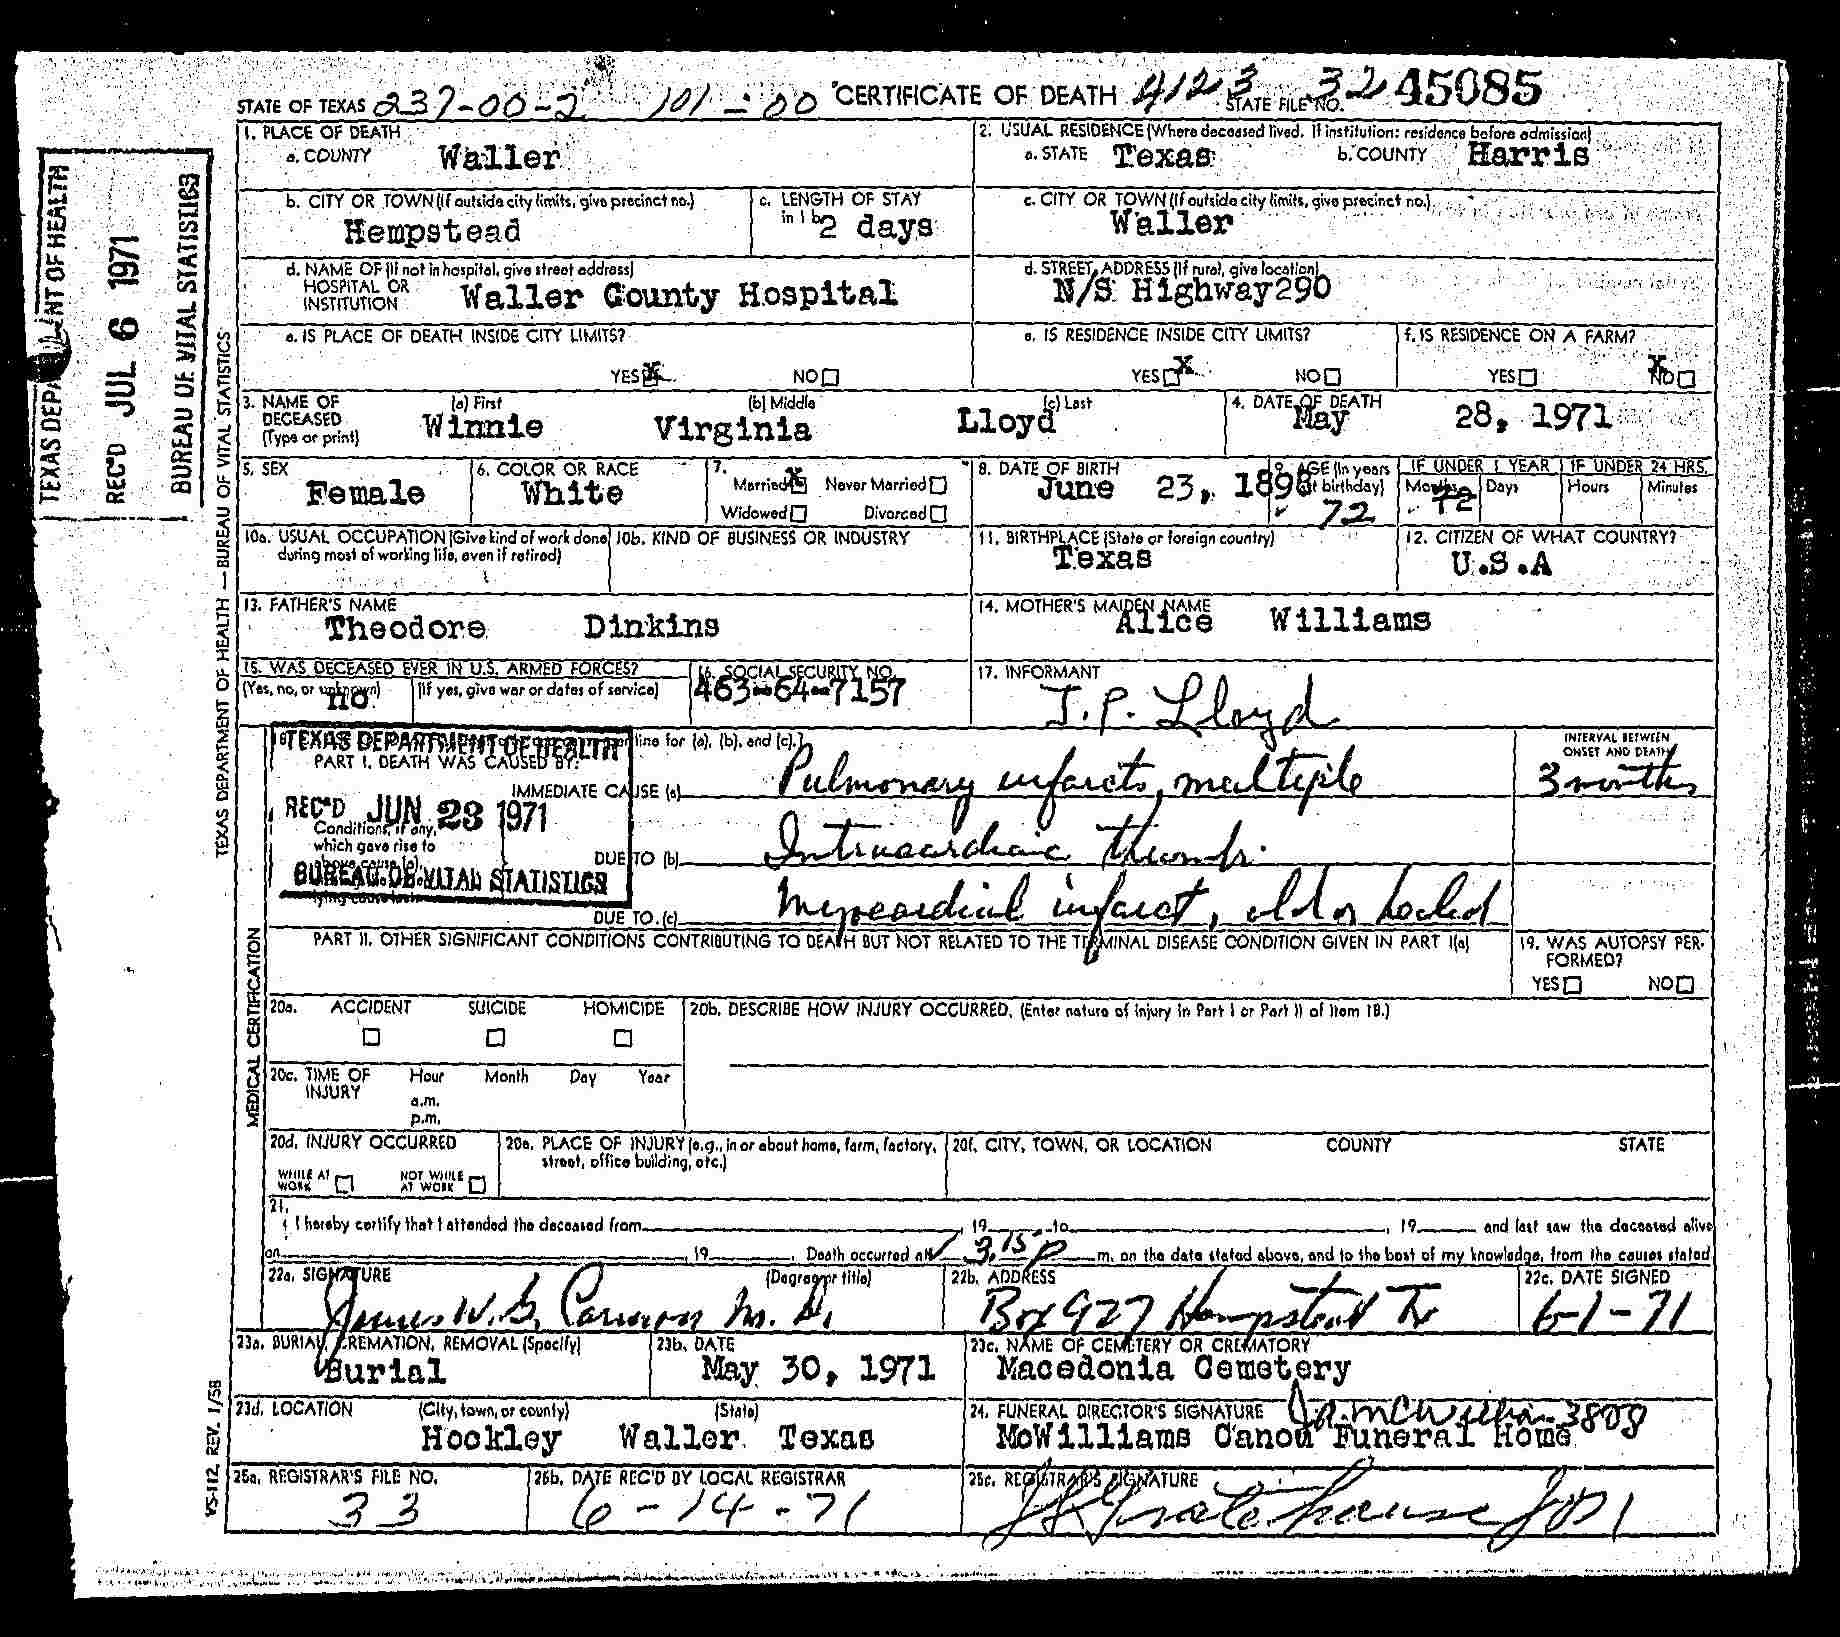 STATE OF TEXAS 237-00-2 101-00 CERTIFICATE OF DEATH 4123 STATE FILE NO. 32 45085
1. PLACE OF DEATH
a. COUNTY Waller
2. USUAL RESIDENCE (Where deceased lived. If institution: residence before admission)
a. STATE Texas b. COUNTY Harris
b. CITY OR TOWN (If outside city limits, give precinct no.)
Hempstead
c. LENGTH OF STAY
in 1 b 2 days
c. CITY OR TOWN (If outside city limits, give precinct no.)
Waller
d. NAME OF (If not in hospital, give street address)
HOSPITAL OR
INSTITUTION Waller County Hospital
d. STREET ADDRESS (If rural, give location)
N/S Highway290
e. IS PLACE OF DEATH INSIDE CITY LIMITS?
YES X NO
e. IS RESIDENCE INSIDE CITY LIMITS?
YES X NO
f. IS RESIDENCE ON A FARM?
YES NO X
3. NAME OF DECEASED (Type or print)
(a) First (b) Middle (c) Last
Winnie Virginia Lloyd
4. DATE OF DEATH
May 28, 1971
5. SEX
Female
6. COLOR OR RACE
White
7.
Married X Never Married
Widowed Divorced
8. DATE OF BIRTH
June 23, 1898
9. AGE (In years
birthday)
72
IF UNDER 1 YEAR IF UNDER 24 HRS.
Months Days Hours Minutes
72
10a. USUAL OCCUPATION (Give kind of work done
during most of working life, even if retired)
10b. KIND OF BUSINESS OR INDUSTRY
11. BIRTHPLACE (State or foreign country)
Texas
12. CITIZEN OF WHAT COUNTRY?
U.S.A
13. FATHER'S NAME
Theodore Dinkins
14. MOTHER'S MAIDEN NAME
Alice Williams
15. WAS DECEASED EVER IN U.S. ARMED FORCES?
(Yes, no, or unknown) (If yes, give war or dates of service)
no
16. SOCIAL SECURITY NO.
463-64-7157
17. INFORMANT
J.P. Lloyd
line for (a), (b), and (c).)
PART I. DEATH WAS CAUSED BY:
INTERVAL BETWEEN
ONSET AND DEATH
IMMEDIATE CAUSE (a) Pulmonary infarcts, multiple 3 months
Conditions, if any,
which gave rise to
above cause (a),
lying cause last.
DUE TO (b) Intracardiac thrombi
DUE TO (c) Myocardial infarct, old or healed
TEXAS DEPARTMENT OF HEALTH
REC'D JUN 23 1971
BUREAU OF VITAL STATISTICS
PART II. OTHER SIGNIFICANT CONDITIONS CONTRIBUTING TO DEATH BUT NOT RELATED TO THE TERMINAL DISEASE CONDITION GIVEN IN PART I(a)
19. WAS AUTOPSY PER-
FORMED?
YES NO
20a. ACCIDENT SUICIDE HOMICIDE
20b. DESCRIBE HOW INJURY OCCURRED. (Enter nature of injury in Part I or Part II of Item 18.)
20c. TIME OF Hour Month Day Year
INJURY
a.m.
p.m.
20d. INJURY OCCURRED
WHILE AT WORK NOT WHILE AT WORK
20e. PLACE OF INJURY (e.g., in or about home, farm, factory,
street, office building, etc.)
20f. CITY, TOWN, OR LOCATION COUNTY STATE
21.
I hereby certify that I attended the deceased from , 19 to , 19 and last saw the deceased alive
on , 19 . Death occurred at 3:15 P m. on the date stated above, and to the best of my knowledge, from the causes stated
22a. SIGNATURE (Degree or title)
James W. G. Cannon M. D.
22b. ADDRESS
Box 927 Hempstead Tx
22c. DATE SIGNED
6-1-71
23a. BURIAL, CREMATION, REMOVAL (Specify)
Burial
23b. DATE
May 30, 1971
23c. NAME OF CEMETERY OR CREMATORY
Macedonia Cemetery
23d. LOCATION (City, town, or county) (State)
Hockley Waller Texas
24. FUNERAL DIRECTOR'S SIGNATURE McWilliams 3808
McWilliams Canon Funeral Home
25a. REGISTRAR'S FILE NO.
33
25b. DATE REC'D BY LOCAL REGISTRAR
6-14-71
25c. REGISTRAR'S SIGNATURE
TEXAS DEPARTMENT OF HEALTH
REC'D JUL 6 1971
BUREAU OF VITAL STATISTICS
TEXAS DEPARTMENT OF HEALTH — BUREAU OF VITAL STATISTICS
MEDICAL CERTIFICATION
VS-112 REV. 1/58